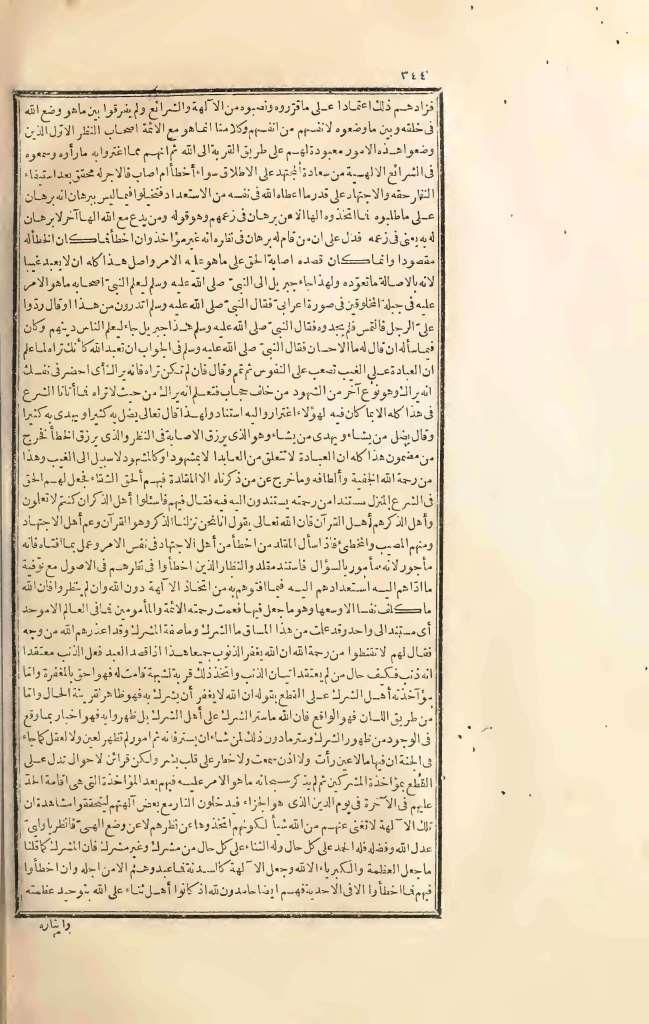 ٣٤٤
فزادهم ذلك اعتمادا على ما قرّروه ونصبوه من الآلهة والشرائع ولم يفرقوا بين ما هو وضع الله
فى خلقه وبين ما وضعوه لانفسهم من انفسهم وكلامنا انما هو مع الائمة اصحاب النظر الاوّل الذين
وضعوا هذه الامور معبودة لهم على طريق القربة الى الله ثم انهم مما اغتروا به ما رأوه وسمعوه
فى الشرائع الالهية من سعادة المجتهد على الاطلاق سواء أخطأ ام اصاب فالاجر له محقق بعد استيفاء
النظر حقه والاجتهاد على قدر ما اعطاه الله فى نفسه من الاستعداد فتخيلوا فيما ليس ببرهان انه برهان
على ما طلبوه فما اتخذوه الها الا عن برهان فى زعمهم وهو قوله ومن يدع مع الله الها آخر لا برهان
له به يعنى فى زعمه فدل على ان من قام له برهان فى نظره انه غير مؤاخذ وان اخطأ فما كان الخطأ له
مقصودا وانما كان قصده اصابة الحق على ما هو عليه الامر واصل هذا كله ان لا يعبد غيبا
لانه بالاصالة ما تعوّده ولهذا جاء جبريل الى النبىّ صلى الله عليه وسلم ليعلم النبىّ اصحابه ما هو الامر
عليه فى جبلة المخلوقين فى صورة اعرابى فقال النبىّ صلى الله عليه وسلم اتدرون من هذا او قال ردّوا
علىّ الرجل فالتمس فلم يجدوه فقال النبىّ صلى الله عليه وسلم هذا جبريل جاء ليعلم الناس دينهم وكان
فيما سأله ان قال له ما الاحسان فقال النبىّ صلى الله عليه وسلم فى الجواب ان تعبد الله كأنك تراه لما علم
ان العبادة على الغيب تصعب على النفوس ثم تمم وقال فان لم تكن تراه فانه يراك أى احضر فى نفسك
انه يراك وهو نوع آخر من الشهود من خلف حجاب فتعلم انه يراك من حيث لا تراه فما أتانا الشرع
فى هذا كله الا بما كان فيه لهؤلاء اغترار واليه استناد ولهذا قال تعالى يضل به كثيرا ويهدى به كثيرا
وقال يضل من يشاء ويهدى من يشاء وهو الذى يرزق الاصابة فى النظر والذى يرزق الخطأ فخرج
من مضمون هذا كله ان العبادة لا تتعلق من العابد الا بمشهود او كالمشهود لا سبيل الى الغيب وهذا
من رحمة الله الخفية وألطافه وما خرج عن من ذكرناه الا المقلدة فيهم ألحق الشقاء فجعل لهم الحق
فى الشرع المنزل مستندا من رحمته يستندون اليه فيه فقال فيهم فاسئلوا أهل الذكر ان كنتم لا تعلمون
وأهل الذكر هم أهل القرآن فان الله تعالى يقول انا نحن نزلنا الذكر وهو القرآن وعم أهل الاجتهاد
ومنهم المصيب والمخطئ فاذا سأل المقلد من اخطأ من أهل الاجتهاد فى نفس الامر وعمل بما افتاه فانه
مأجور لانه مأمور بالسؤال فاستند مقلدو النظار الذين اخطأوا فى نظرهم فى الاصول مع توفية
ما اداهم اليه استعدادهم اليه فيما افتوهم به من اتخاذ الآلهة دون الله وان لم ينظروا فان الله
ما كلف نفسا الا وسعها وهو ما جعل فيها فعمت رحمته الائمة والمأمومين فما فى العالم الا موحد
أى مستند الى واحد وقد علمت من هذا المساق ما الشرك وما صفة المشرك وقد اعذرهم الله من وجه
فقال لهم لا تقنطوا من رحمة الله ان الله يغفر الذنوب جميعا هذا اذا قصد العبد فعل الذنب معتقدا
انه ذنب فكيف حال من لم يعتقد اتيان الذنب واتخذ ذلك قربة لشبهة قامت له فهو احق بالمغفرة وامّا
مؤاخذته أهل الشرك على القطع بقوله ان الله لا يغفر أن يشرك به فهو ظاهر لقرينة الحال وامّا
من طريق اللسان فهو الواقع فان الله ما ستر الشرك على أهل الشرك بل ظهروا به فهو اخبار بما وقع
فى الوجود من ظهور الشرك وستر ما دون ذلك لمن شاء ان يستر فانه ثم امور لم تظهر لعين ولا لعقل كما جاء
فى الجنة ان فيها ما لا عين رأت ولا اذن سمعت ولا خطر على قلب بشر ولكن قرائن الاحوال تدل على
القطع بمؤاخذة المشركين ثم لم يذكر سبحانه ما هو الامر عليه فيهم بعد المؤاخذة التى هى اقامة الحدّ
عليهم فى الآخرة فى يوم الدين الذى هو الجزاء فيدخلون النار مع بعض آلهتهم ليتحققوا مشاهدة ان
تلك الآلهة لا تغنى عنهم من الله شيأ لكونهم اتخذوها عن نظرهم لا عن وضع الهىّ فانظر يا ولىّ
عدل الله وفضله فلله الحمد على كل حال وله الثناء على كل حال من مشرك وغير مشرك فان المشرك كما قلنا
ما جعل العظمة والكبرياء الا لله وجعل الآلهة كالسدنة فما عبدوهم الا من اجله وان اخطأوا
فيهم فما اخطأوا الا فى الاحدية فهم ايضا حامدون لله اذ كانوا أهل ثناء على الله بتوحيد عظمته
وايثاره